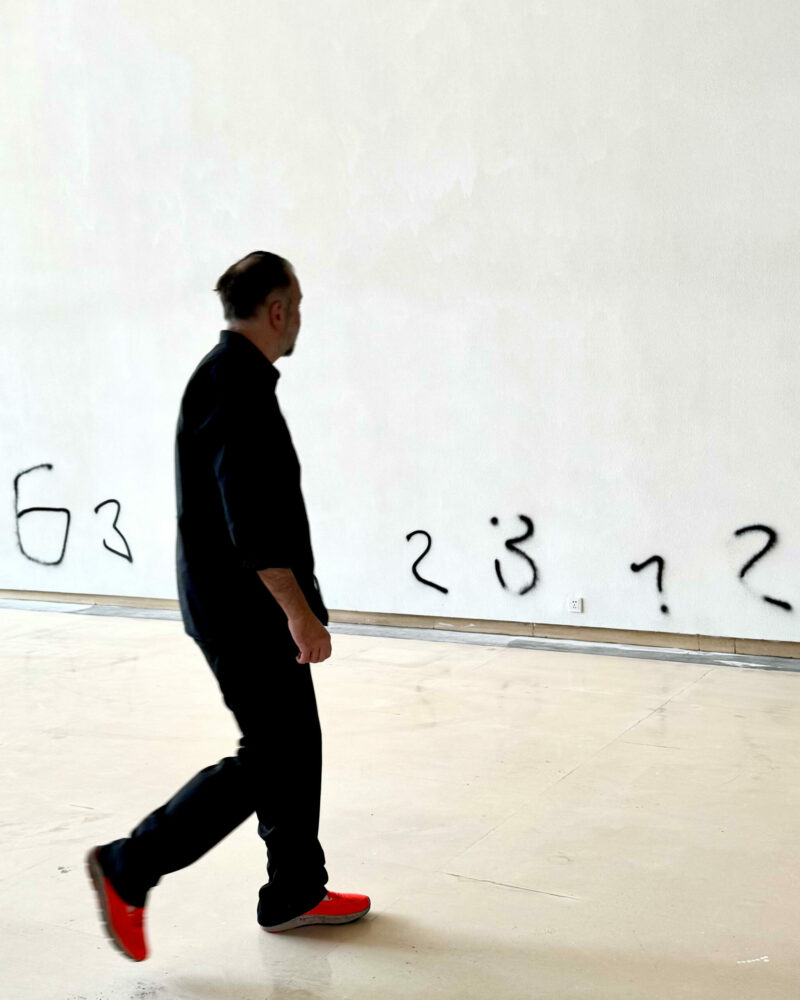 63 2 3 ? 2